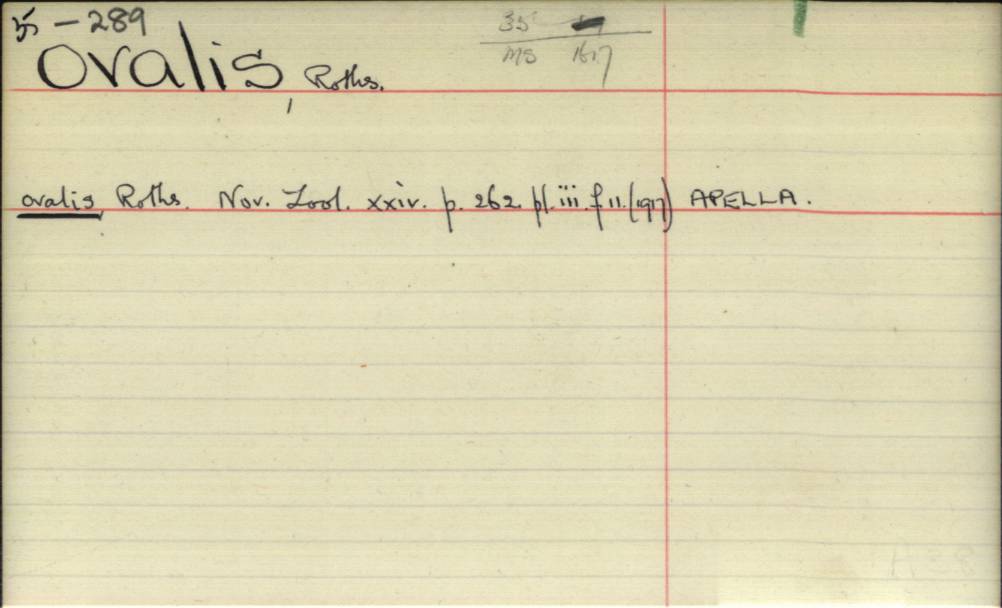 35 - 289
35
ovalis, Roths.
MS 1617
ovalis Roths. Nov. Zool. xxiv. p. 262. pl. iii. f 11. (1917) APELLA.